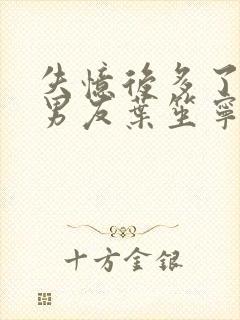 失憶後多了
男友葉笙寧
十方金銀